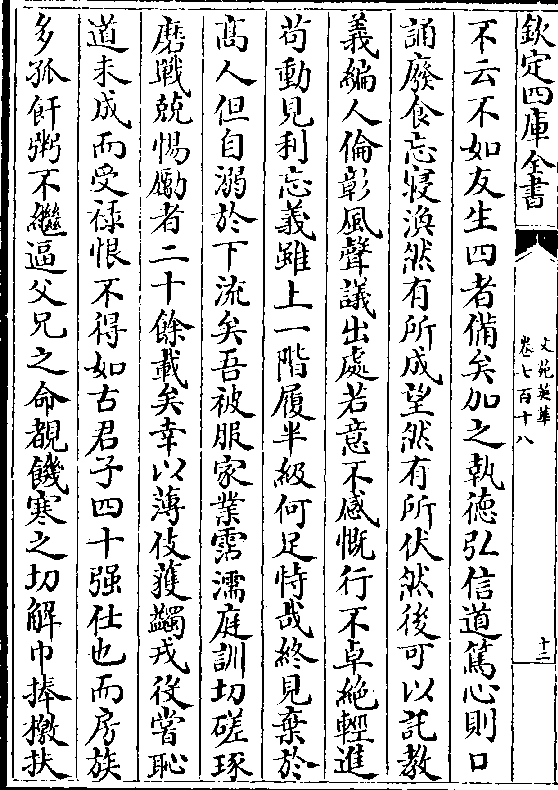 欽定四庫全書
文苑英華
卷七百十八
十二
不云不如友生四者備矣加之執德弘信道篤心則口
誦廢食忘寢渙然有所成望然有所伏然後可以託教
義編人倫彰風聲議出處若意不感慨行不卓絶輕進
苟動見利忘義雖上一階履半級何足恃哉終見棄於
髙人但自溺於下流矣吾被服家業霑濡庭訓切磋琢
磨戰兢惕勵者二十餘載矣幸以薄伎獲蠲戎役嘗恥
道未成而受禄恨不得如古君子四十强仕也而房族
多孤飦粥不繼逼父兄之命覩饑寒之切解巾捧檄扶